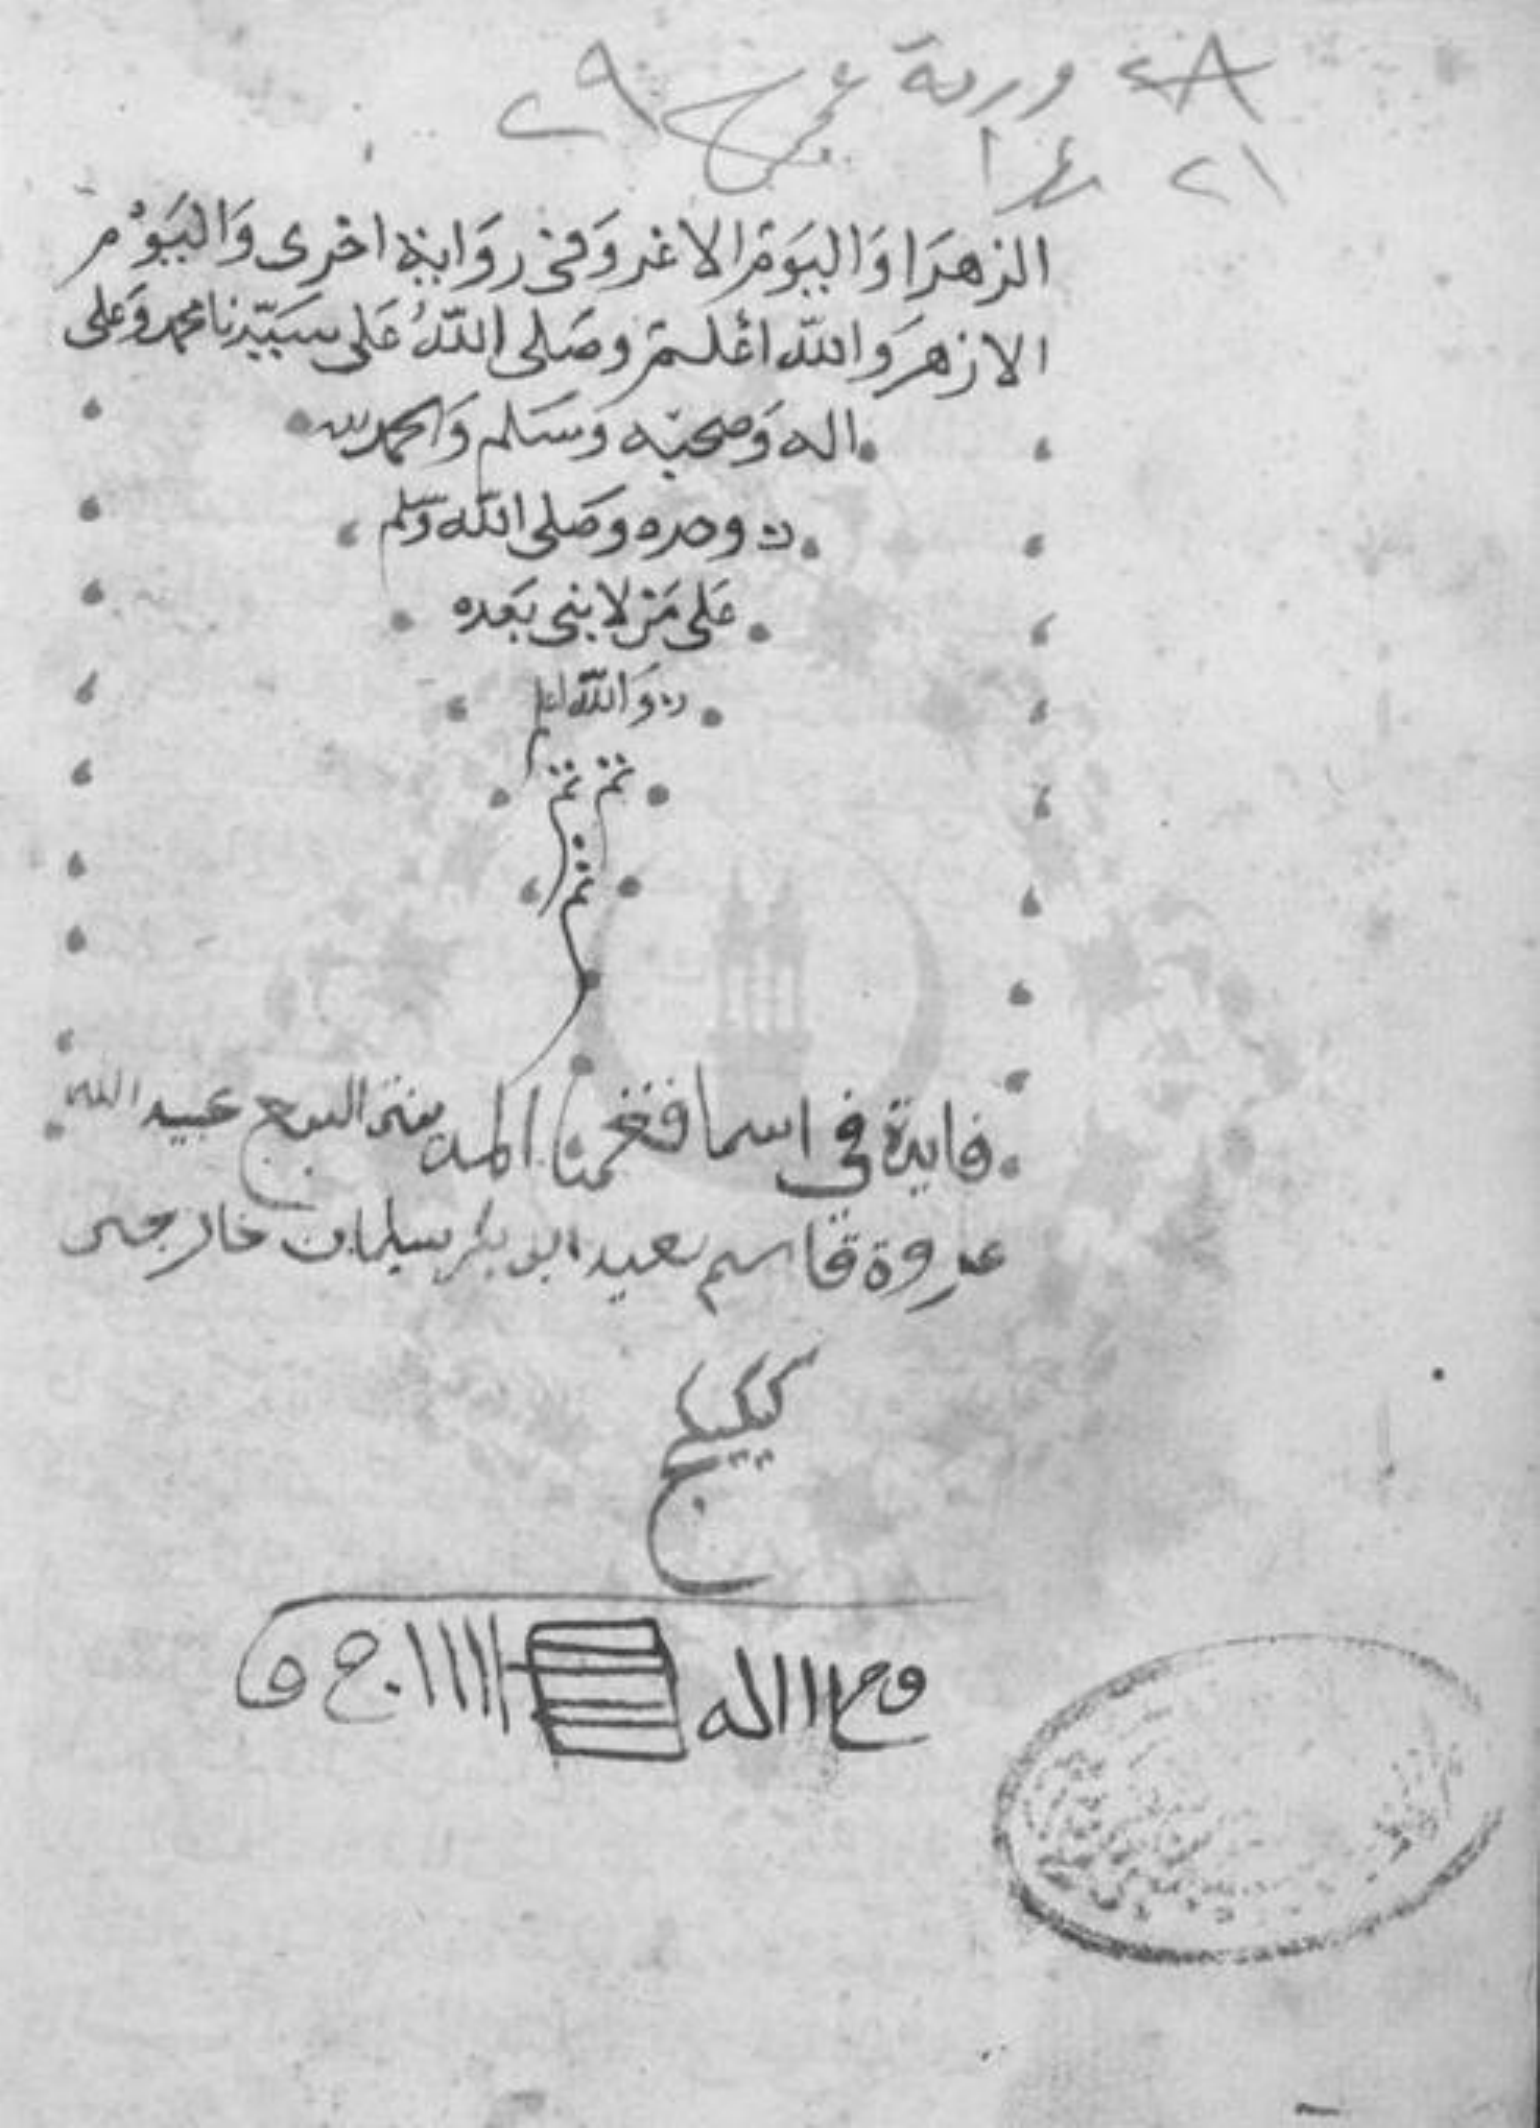 ٢٨ ورقة ٢٩
٢١
الزهرا واليوم الاغر وفى رواية اخرى واليوم
الازهر والله اعلم وصلى الله على سيدنا محمد وعلى
اله وصحبه وسلم والحمد لله
وحده وصلى الله وسلم
على من لا نبى بعده
والله اعلم
تم تم
تم
فايدة في اسما فقها المدينة السبع عبيد الله
عروة قاسم سعيد ابو بكر سليمان خارجه
كيكيكج